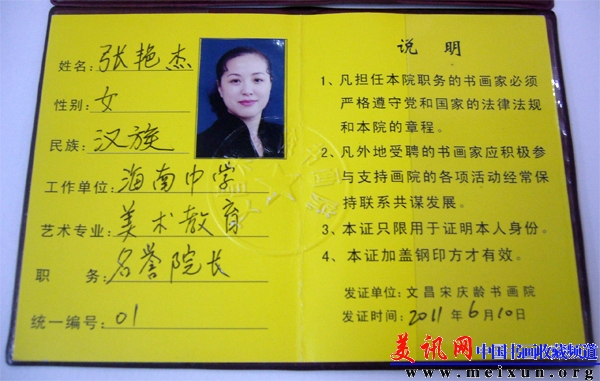 姓名:张艳杰
性别:女
民族:汉族
工作单位:海南中学
艺术专业:美术教育
职 务:名誉院长
统一编号:01
说 明
1、凡担任本院职务的书画家必须
严格遵守党和国家的法律法规
和本院的章程。
2、凡外地受聘的书画家应积极参
与支持画院的各项活动经常保
持联系共谋发展。
3、本证只限用于证明本人身份。
4、本证加盖钢印方才有效。
发证单位:文昌宋庆龄书画院
发证时间:2011年6月10日
美讯网 中国书画收藏频道
www.meixun.org